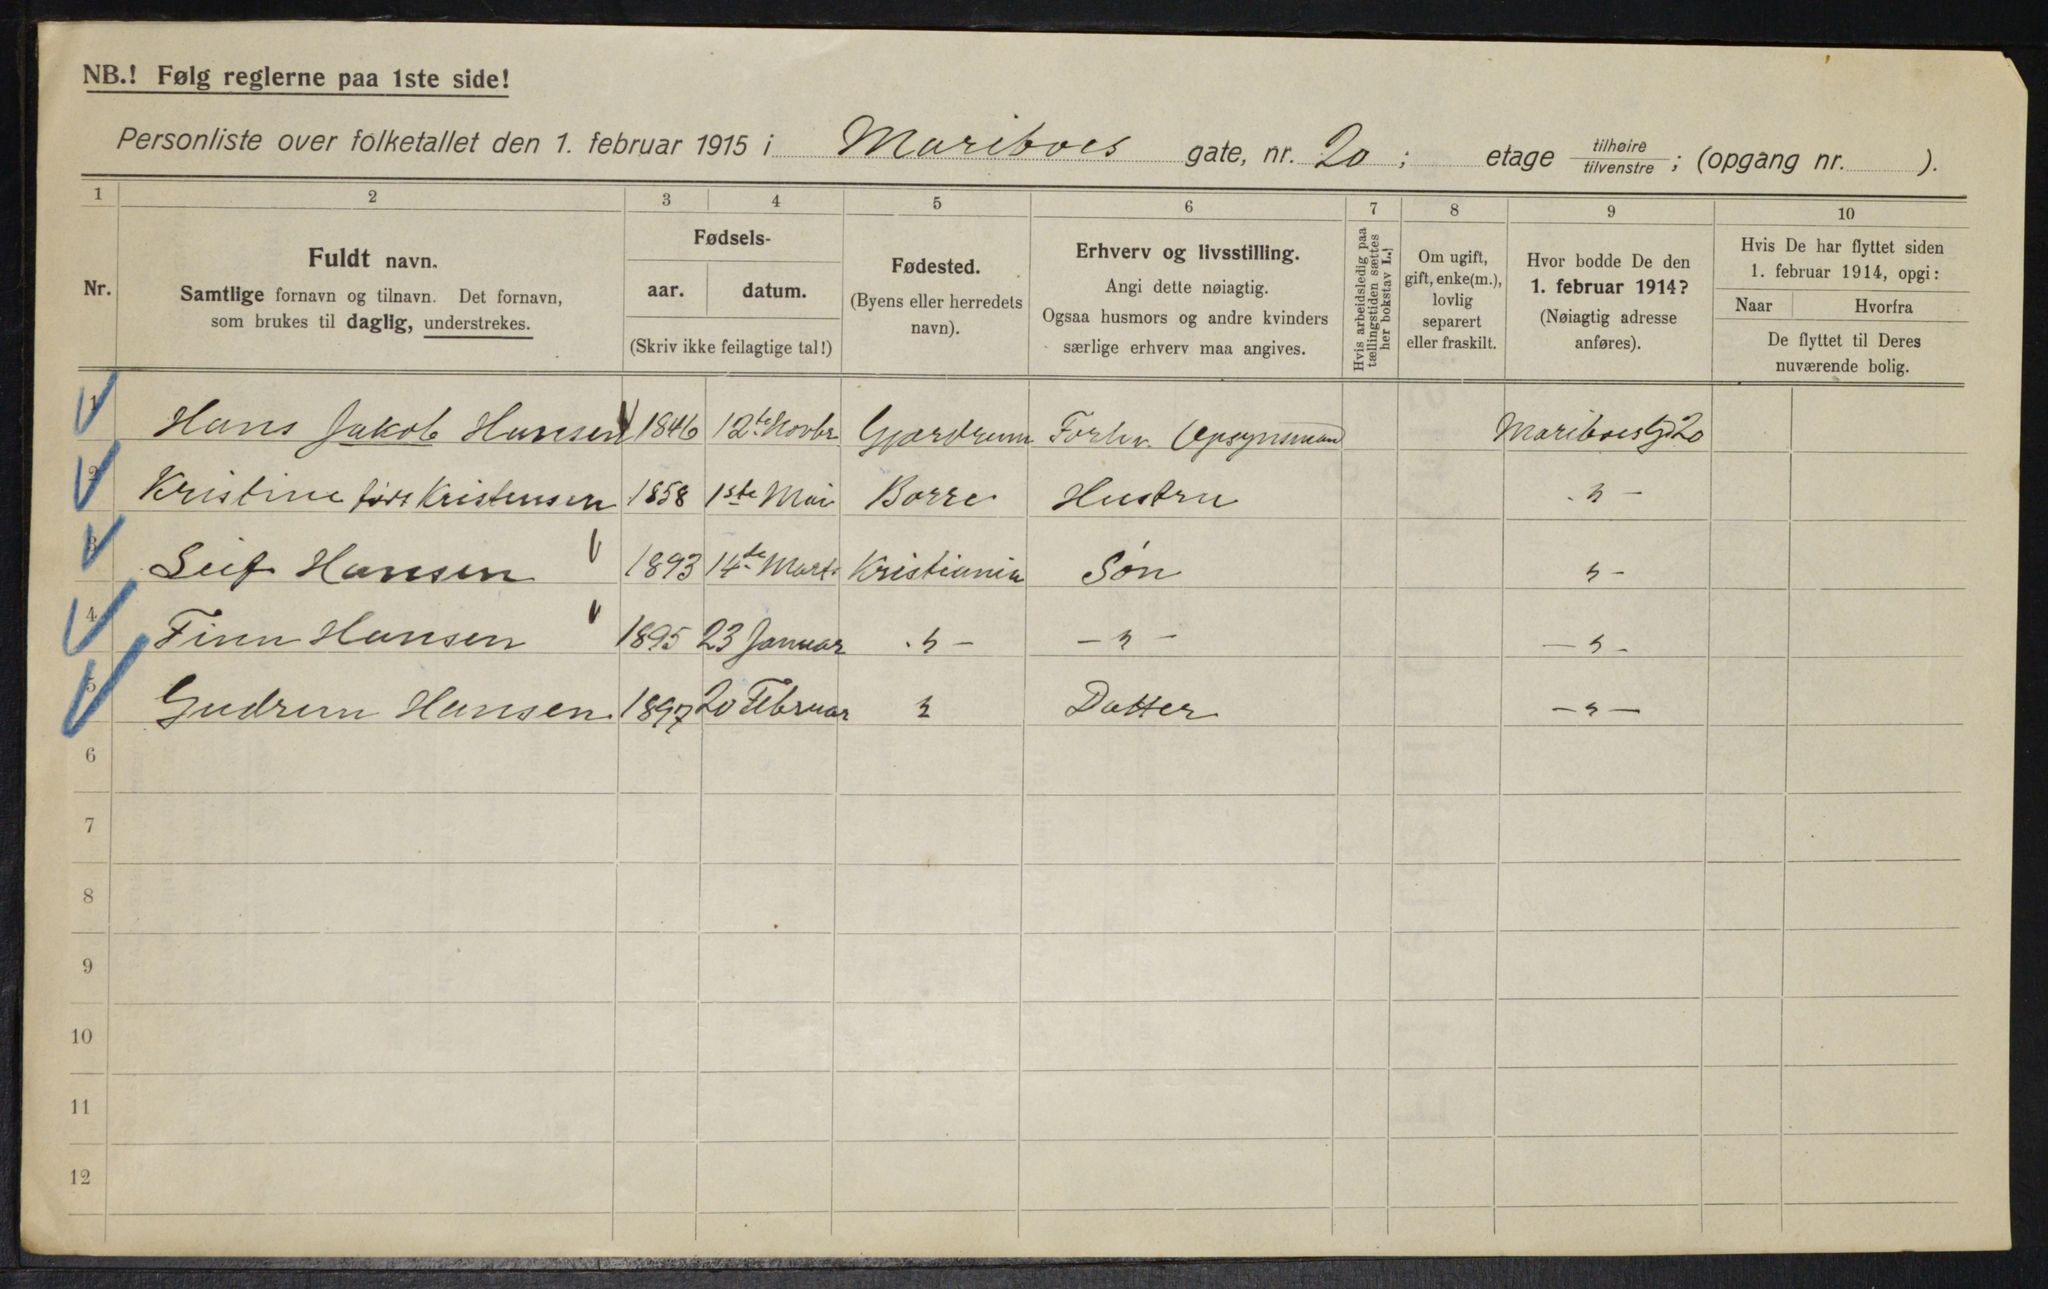 NB.! Følg reglerne paa 1ste side!
Personliste over folketallet den 1. februar 1915 i Mariboes gate, nr. 20; etage tilhøire/tilvenstre; (opgang nr. ).
1 2 3 4 5 6 7 8 9 10
Nr.
Fuldt navn.
Samtlige fornavn og tilnavn. Det fornavn,
som brukes til daglig, understrekes.
Fødsels-
aar. datum.
(Skriv ikke feilagtige tal!)
Fødested.
(Byens eller herredets
navn).
Erhverv og livsstilling.
Angi dette nøiagtig.
Ogsaa husmors og andre kvinders
særlige erhverv maa angives.
Hvis arbeidsledig paa
tællingstiden sættes
her bokstav L.!
Om ugift,
gift, enke(m.),
lovlig
separert
eller fraskilt.
Hvor bodde De den
1. februar 1914?
(Nøiagtig adresse
anføres).
Hvis De har flyttet siden
1. februar 1914, opgi:
Naar Hvorfra
De flyttet til Deres
nuværende bolig.
1 Hans Jakob Hansen 1846 12te Novbr Gjerdrum Forhv. Opsynsmand Mariboes G 20
2 Kristine født Kristensen 1858 1ste Mai Borre Hustru " -
3 Leif Hansen 1893 14de Marts Kristiania Søn " -
4 Finn Hansen 1895 23 Januar " - - " - - " -
5 Gudrun Hansen 1897 20 Februar " Datter - " -
6
7
8
9
10
11
12